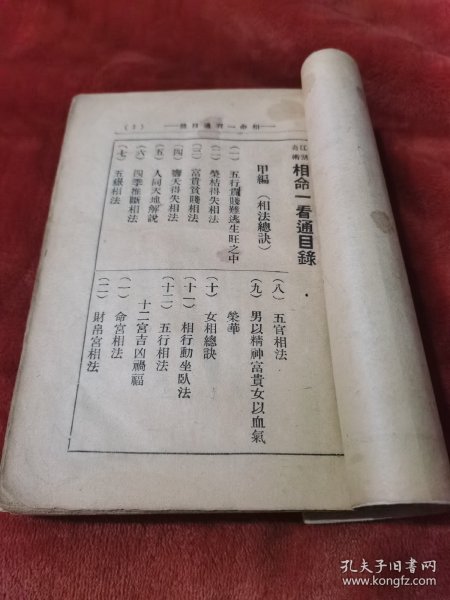 相命一看通目錄
（1）
相命一看通目錄
甲編（相法總訣）
（一）五行貴賤難逃生旺之中
（二）榮枯得失相法
（三）富貴貧賤相法
（四）壽夭得失相法
（五）人同天地解說
（六）四季推斷相法
（七）五嶽相法
（八）五官相法
（九）男以精神富貴女以血氣
榮華
（十）女相總訣
（十一）相行動坐臥法
（十二）五行相法
十二宮吉凶禍福
（一）命宮相法
（二）財帛宮相法
孔夫子旧书网
www.kongfz.com